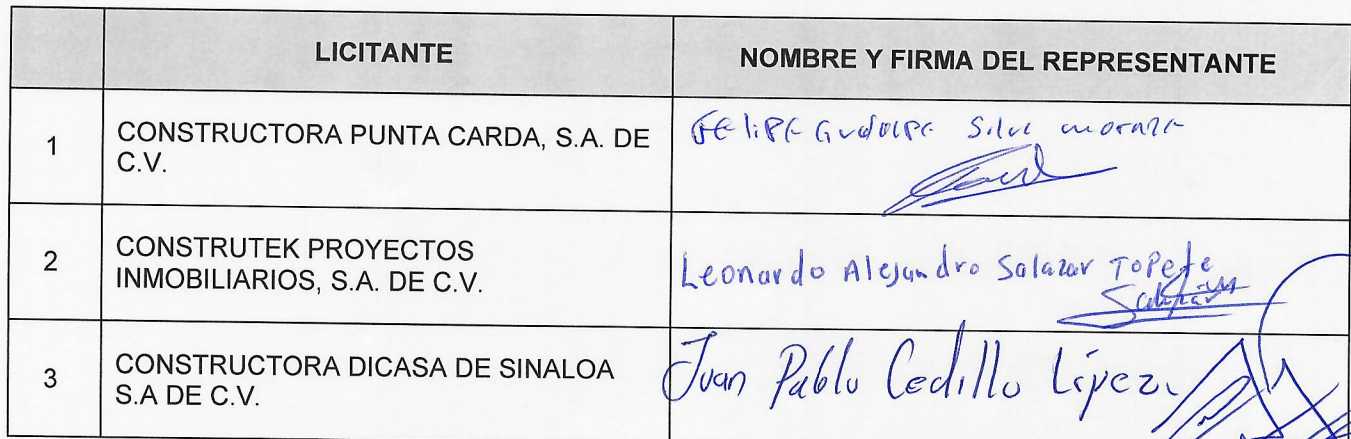 LICITANTE NOMBRE Y FIRMA DEL REPRESENTANTE
1 CONSTRUCTORA PUNTA CARDA, S.A. DE
C.V.
FEliPE Silva
2 CONSTRUTEK PROYECTOS
INMOBILIARIOS, S.A. DE C.V.
Leonardo Alejandro Salazar Topete
3 CONSTRUCTORA DICASA DE SINALOA
S.A DE C.V.
Juan Pablo Cedillo López